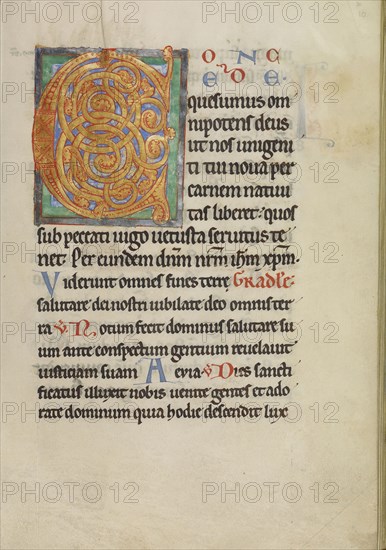 CONC
EDE·
quesumus om
nipotens deus
ut nos unigeni
ti tui noua per
carnem natiui
tas liberet· quos
sub peccati iugo uetusta seruitus te
net· Per eundem dnm nrm ihm xpm·
Viderunt omnes fines terre Gradle·
salutare dei nostri iubilate deo omnis ter
ra V Notum fecit dominus salutare su
um ante conspectum gentium reuelauit
iusticiam suam Aeuia· V Dies sancti
ficatus illuxit nobis uenite gentes et ado
rate dominum quia hodie descendit lux
PHOTO 12